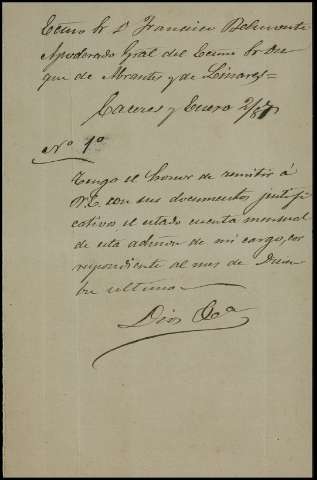 Excmo Sr Dn Francisco Belmonte
Apoderado Gral del Excmo Sr Du
que de Abrantes y de Linares=
Caceres y Enero 2/87
Nº 1º
Tengo el honor de remitir á
V.E. con sus documentos justifi
cativos el estado cuenta mensual
de esta admon de mi cargo, cor
respondiente al mes de Diciem
bre ultimo=
Dios &a